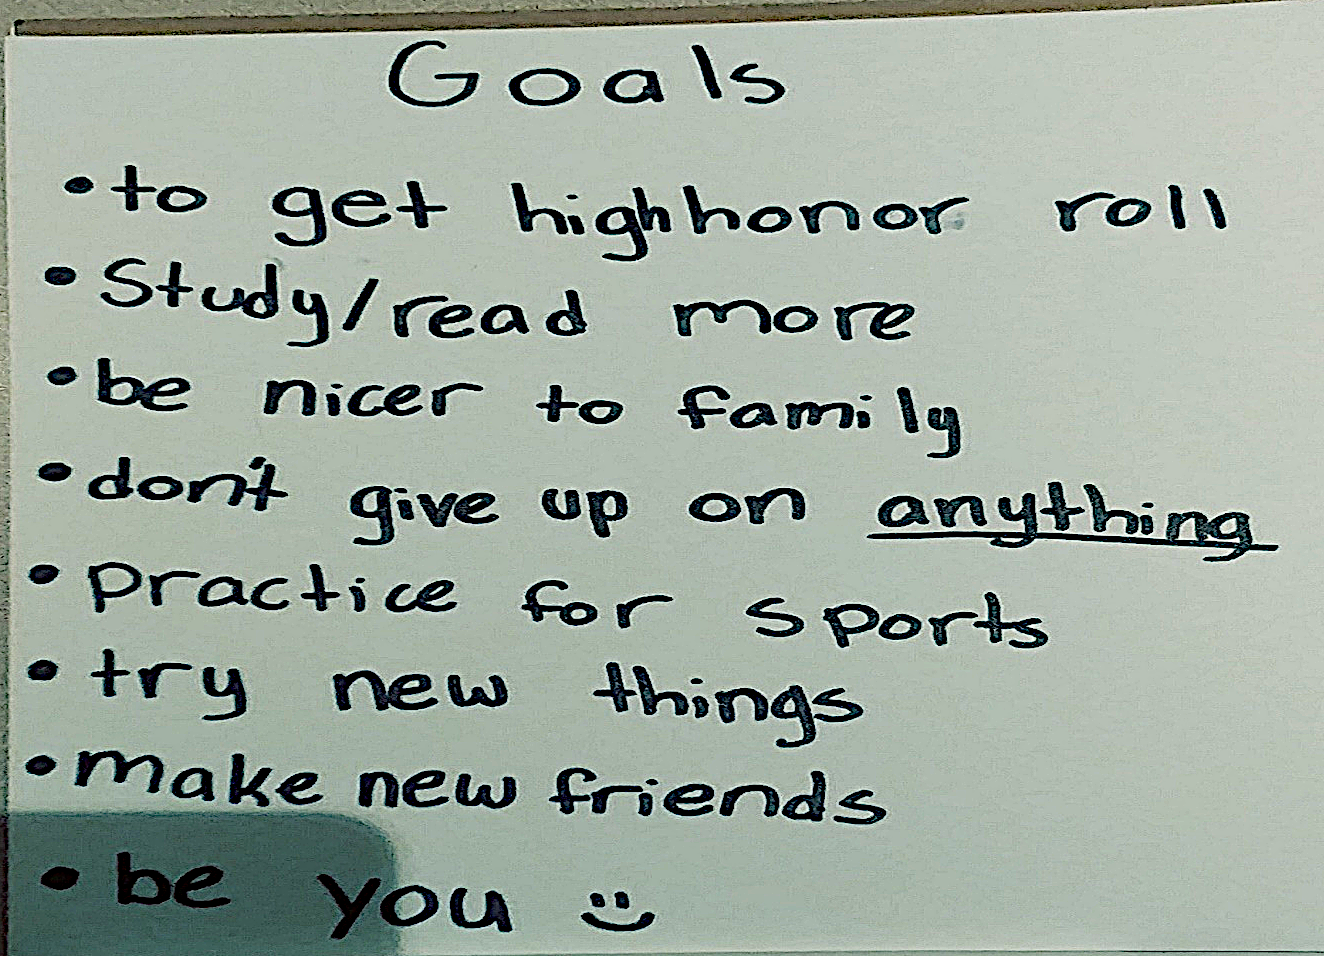 Goals
• to get high honor roll
• Study/read more
• be nicer to family
• don't give up on anything
• practice for sports
• try new things
• make new friends
• be you :)